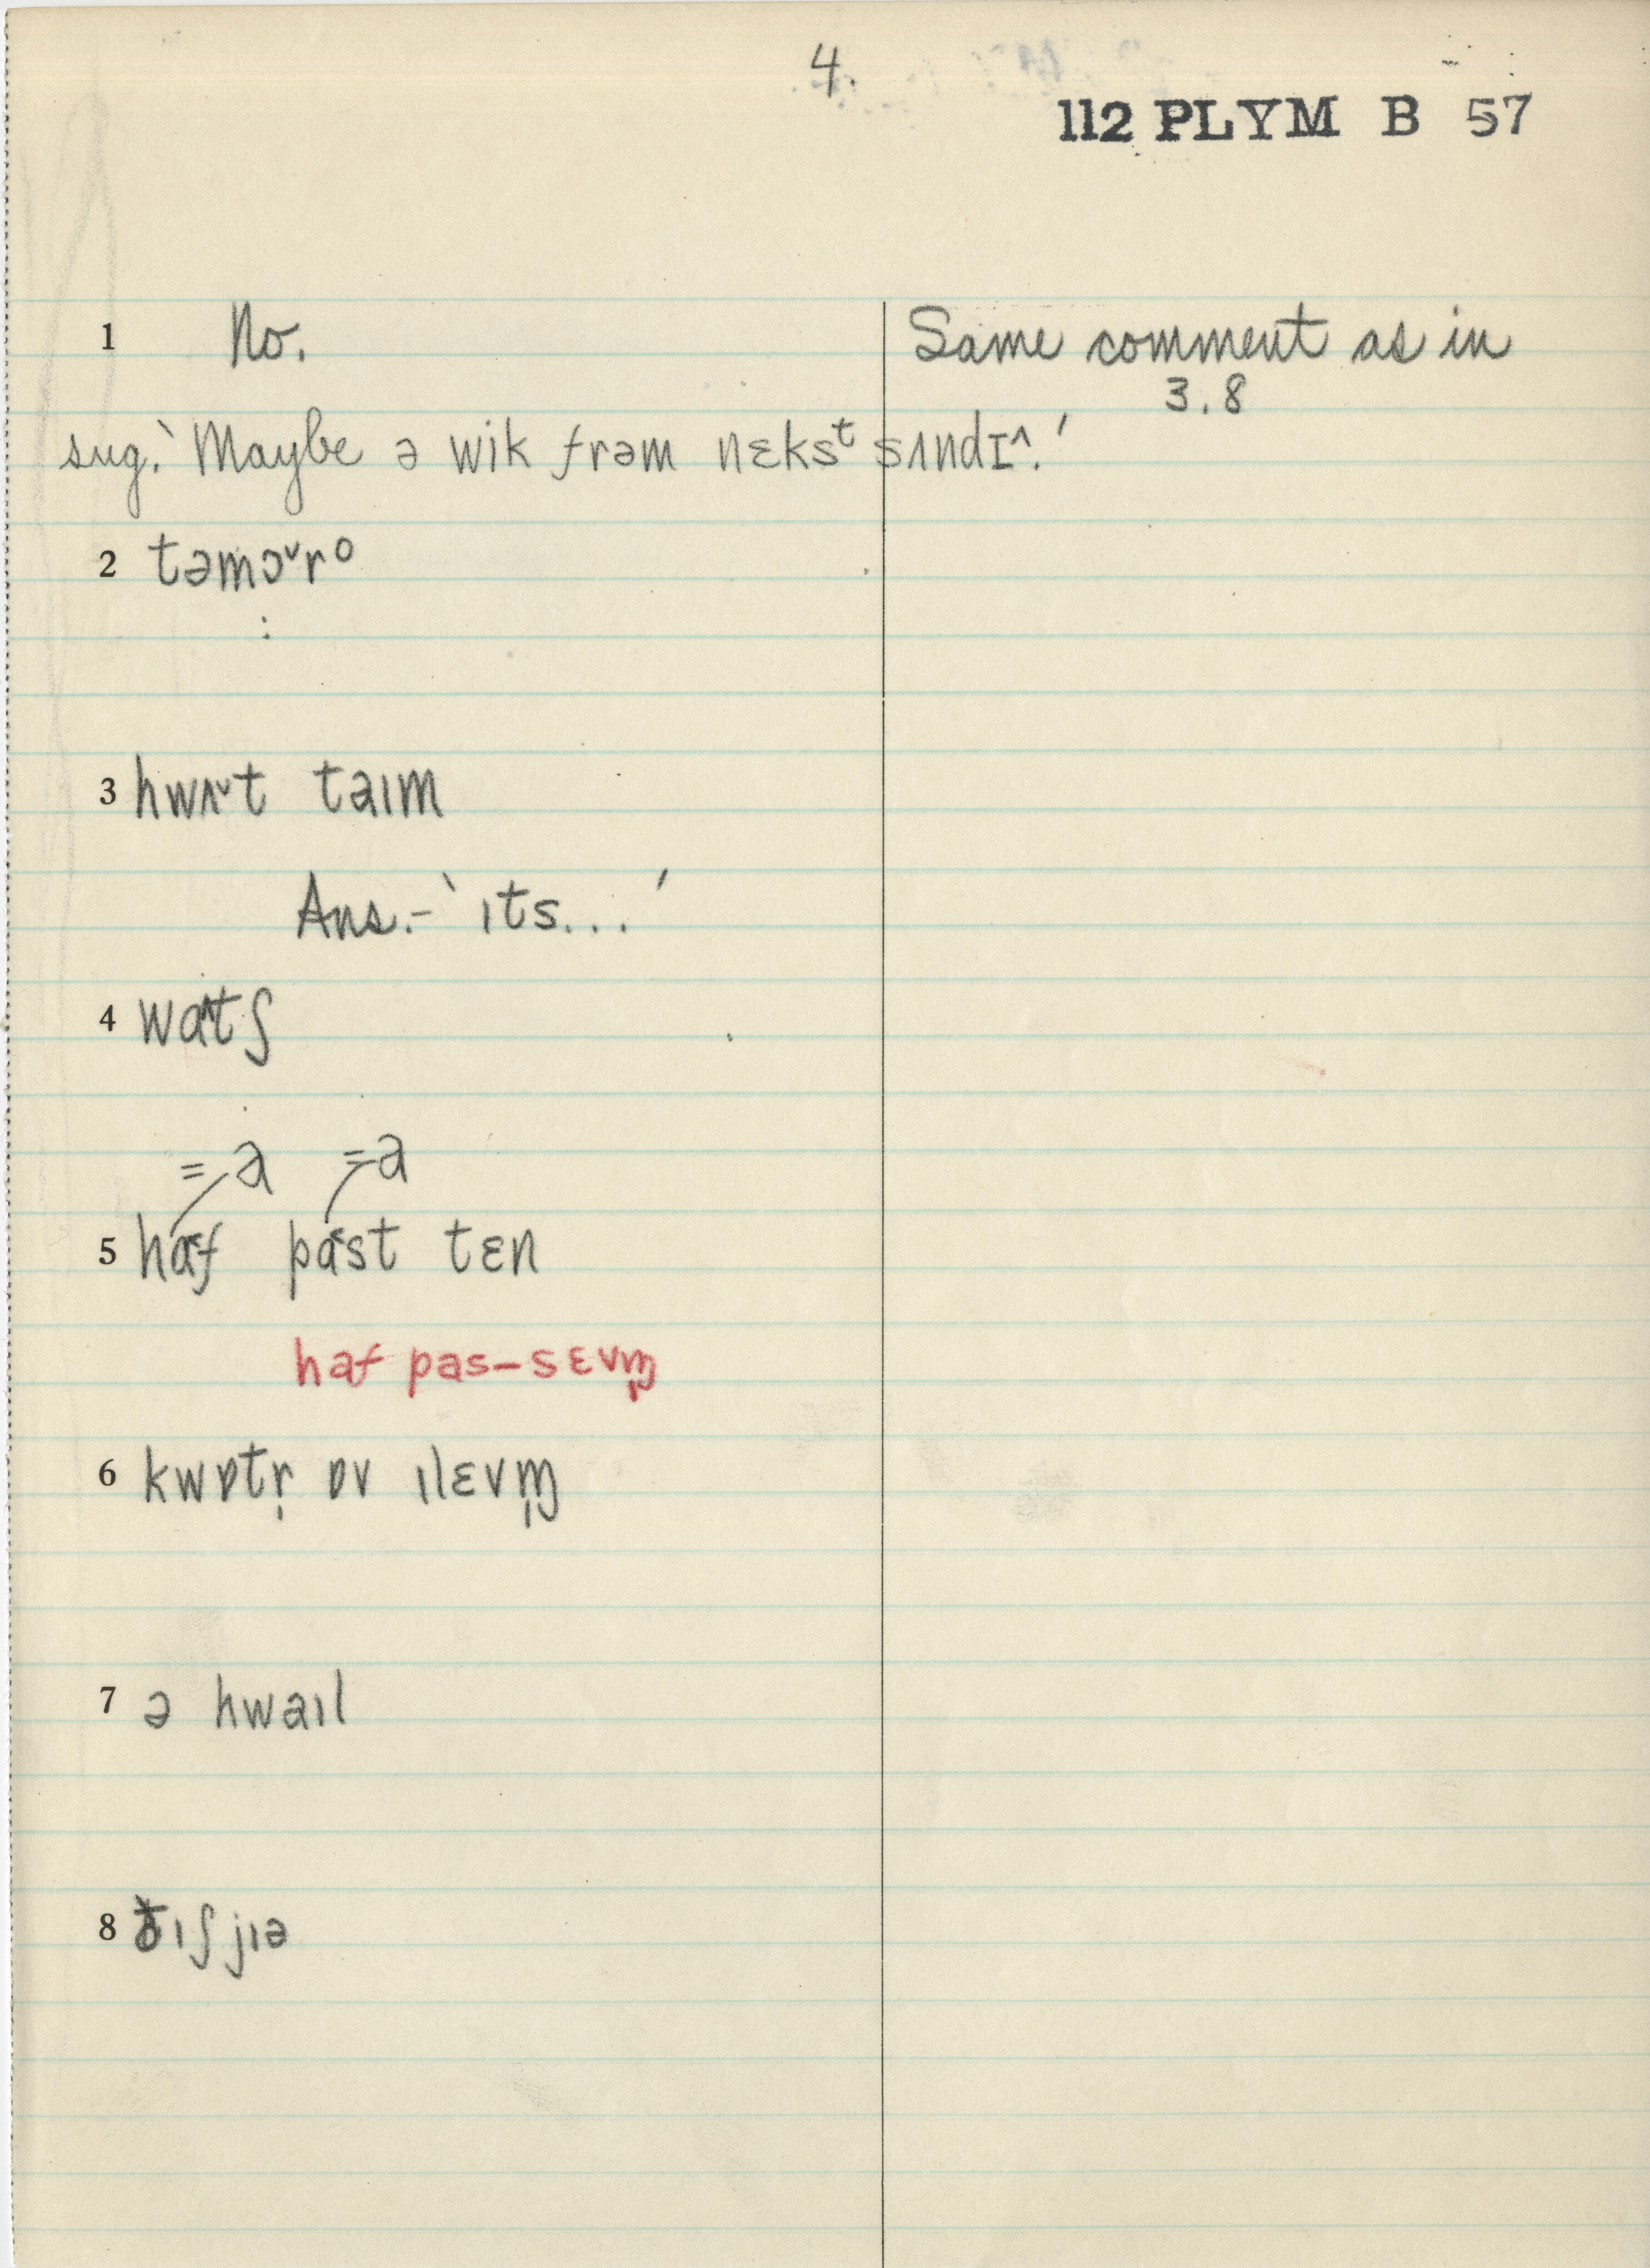 4.
112 PLYM B 57
1 No.
Same comment as in
3.8
sug. ‵Maybe ə wik frəm nɛksᵗ sʌndɪ^.′
2 təmɔ˅rº
:
3 hwʌ˅t taım
Ans.– ‵ıts...′
4 wɑ^tʃ
=a =a
5 haf past tɛn
haf pas–sɛvɱ̩
6 kwɒtr̩ ɒv ılɛvɱ̩
7 ə hwaıl
8 ðıʃ jıə